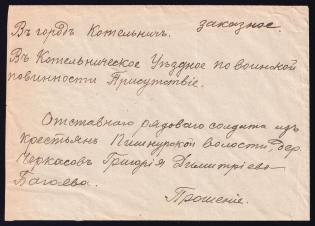 заказное.
Въ городъ Котельничъ.
Въ Котельническое Уѣздное по воинской
повинности Присутствіе.
Отставнаго рядоваго солдата изъ
крестьянъ Пишнурской волости, дер.
Черкасовъ Григорія Димитріева
Багаева.
Прошеніе.